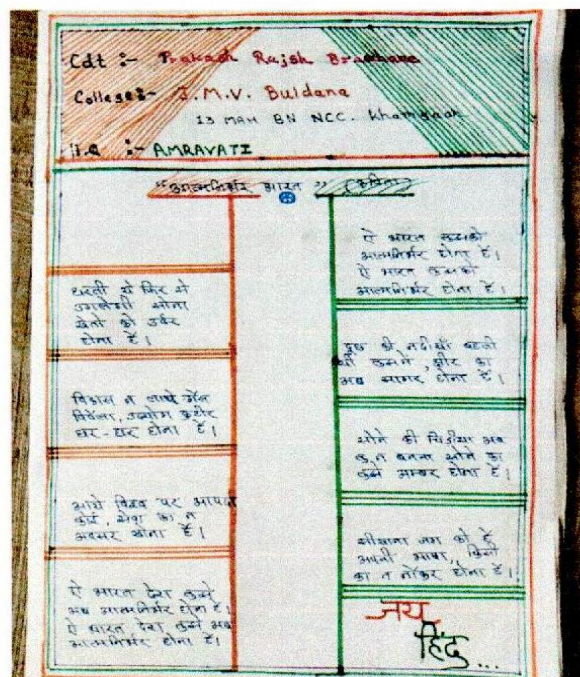 Cdt :- Prakash Rajsh
College:- J.M.V. Buldana
13 MAH BN NCC. Khamgaon
H.Q :- AMRAVATI
"आत्मनिर्भर भारत" (कविता)
धरती से फिर से
उगलेगी सोना
खेतों को उर्वर
होना है।
विकास न लाये
विषैला, उद्योग कुटीर
घर-घर होना है।
आये विश्व पर आपदा
कोई, सेवा का न
अवसर खोना है।
ऐ भारत देश तुझे
अब आत्मनिर्भर होना है।
ऐ भारत देश तुझे अब
आत्मनिर्भर होना है।
ऐ भारत तुझको
आत्मनिर्भर होना है।
ऐ भारत तुझको
आत्मनिर्भर होना है।
दूध की नदीयाँ बहती
थी तुझमे, क्षीर का
अब सागर होना है।
सोने की चिडीया अब
तू न बनना सोने का
तुझे अम्बर होना है।
सीखाना जग को है
अपनी भाषा, किसी
का न नौकर होना है।
जय
हिंद...